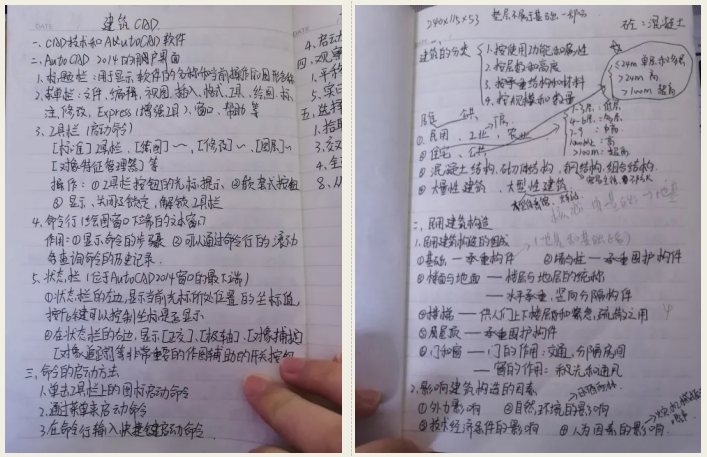 建筑CAD
一、CAD技术和AutoCAD软件
二、AutoCAD 2014的用户界面
1.标题栏：用于显示软件的名称和当前操作的图形名称
2.菜单栏：文件、编辑、视图、插入、格式、工具、绘图、标
注、修改、Express(增强工具)、窗口、帮助等
3.工具栏(启动命令)
[标准]工具栏、[绘图]~、[修改]~、[图层]~
[对象特征管理器]等
操作：①工具栏按钮的光标提示、②嵌套式按钮
③显示、关闭及锁定、解锁工具栏
4.命令行(绘图窗口下端的文本窗口)
作用：①显示命令的步骤 ②可以通过命令行的滚动
条查询命令的历史记录.
5.状态栏(位于AutoCAD2014窗口的最下端)
①状态栏的左边,显示当前光标所处位置的坐标值,
按F6键可以控制坐标是否显示
②在状态栏的右边,显示[正交]、[极轴]、[对象捕捉]
[对象追踪]等非常重要的作图辅助的开关按钮
三、命令的启动方法
1.单击工具栏上的图标启动命令
2.通过菜单来启动命令
3.在命令行输入快捷键启动命令.
4.启动
四、观察
1.平移
5.实
五、选择
1.拾取
3.交
4.全
8.从
240×115×53 垫层不属于基础一部分
砼：混凝土
建筑的分类
1.按使用功能和属性
2.按层数和高度
3.按承重结构和材料
4.按规模和数量
≤24m 单层和多层
>24m 高
>100m 超高
①民用、工业、农业
1-3层：低层
4-6层：多层
7-9：中高
10以上：高
>100m：超高
②住宅、公共
③混凝土结构、砌体结构、钢结构、组合结构
④大量性建筑、大型性建筑
二、民用建筑构造
1.民用建筑构造的组成
①基础 — 承重构件 ②墙与柱 — 承重围护构件
③楼面与地面 — 楼层与地层的统称
— 水平承重、竖向分隔构件
④楼梯 — 供人们上下楼层和紧急疏散之用
⑤屋顶 — 承重围护构件
⑥门和窗 — 门的作用：交通、分隔房间
— 窗的作用：采光和通风
2.影响建筑构造的因素
①外力影响 ②自然环境的影响
③技术经济条件的影响 ④人为因素的影响.